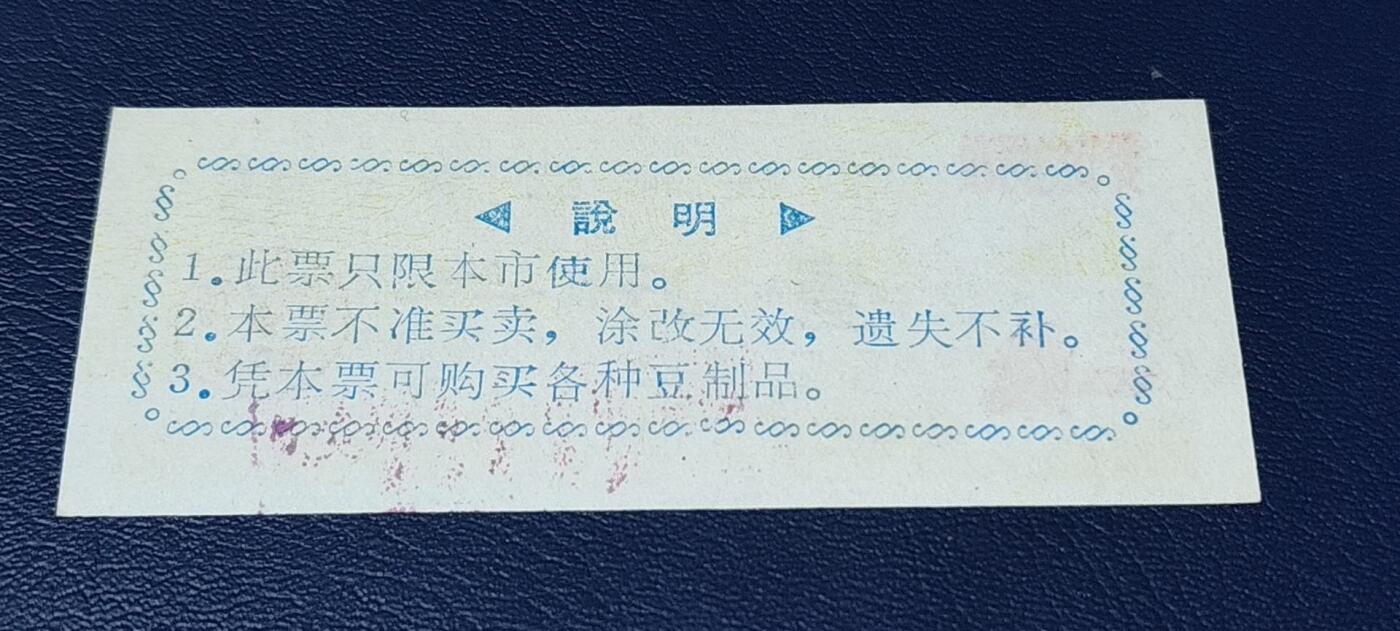 說 明
1.此票只限本市使用。
2.本票不准买卖，涂改无效，遗失不补。
3.凭本票可购买各种豆制品。